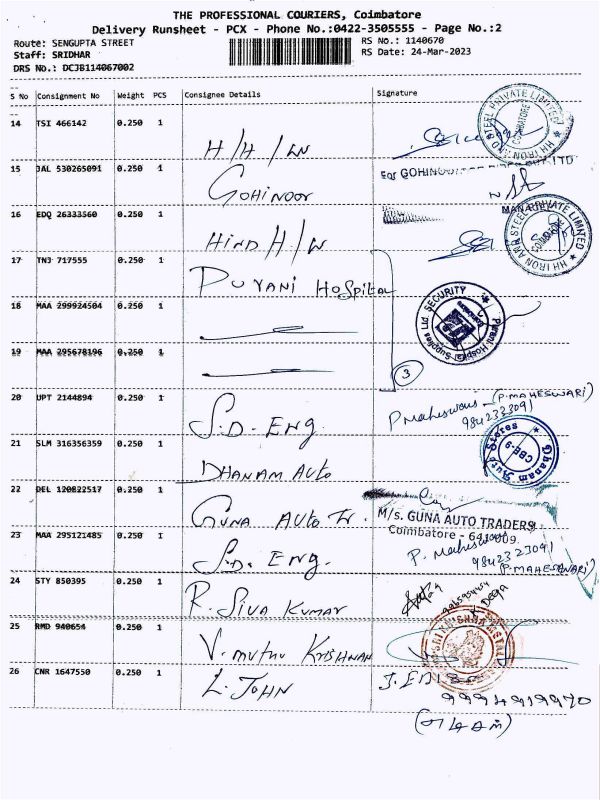 THE PROFESSIONAL COURIERS, Coimbatore
Delivery Runsheet - PCX - Phone No.:0422-3505555 - Page No.:2
Route: SENGUPTA STREET
RS No.: 1140670
Staff: SRIDHAR
RS Date: 24-Mar-2023
DRS No.: DCJB114067002
S No Consignment No Weight PCS Consignee Details Signature
14 TSI 466142 0.250 1 H/H/W
HH IRON AND STEEL PRIVATE LIMITED COIMBATORE
15 JAL 530265091 0.250 1 GOHINOOR
For GOHINOOR
PVT. LTD
MANAGER
16 EDQ 26333560 0.250 1 HIND H/W
HH IRON AND STEEL PRIVATE LIMITED
17 TNJ 717555 0.250 1 PURANI HOSPITAL
18 MAA 299924504 0.250 1
Purani Hospital Supplies Ltd. SECURITY
19 MAA 295678196 0.250 1
3
20 UPT 2144894 0.250 1 S.D. ENG.
P Maheswari (P.MAHESWARI)
9842323091
21 SLM 316356359 0.250 1 DHANAM AUTO
Dhanam Auto Stores CBE-9
22 DEL 120822517 0.250 1 GUNA AUTO Tr.
M/s. GUNA AUTO TRADERS
Coimbatore - 641 009.
23 MAA 295121485 0.250 1 S.D. ENG.
P. Maheswari
9842323091
(P.MAHESWARI)
24 STY 850395 0.250 1 R. SIVA KUMAR
25 RMD 940654 0.250 1 V. MUTHU KRISHNAN
26 CNR 1647550 0.250 1 L. JOHN
9994919970